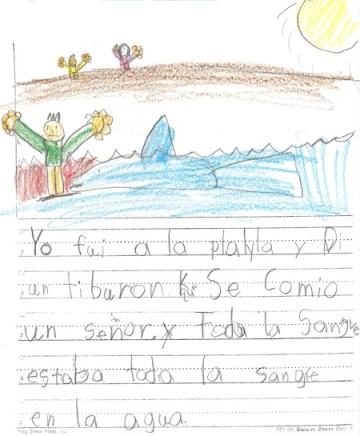 Yo fui a la plalyla y Di
un tiburon Ke Se Comio
un señor. y Toda la Sangre
estaba toda la sangre
en la agua.